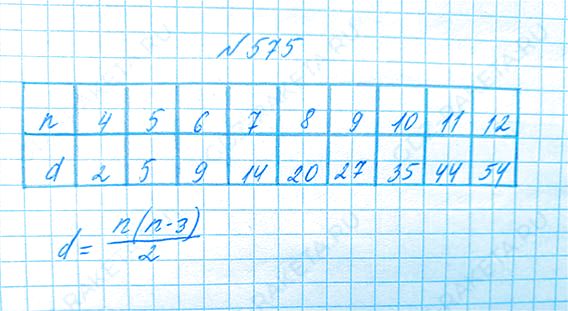 №575
n 4 5 6 7 8 9 10 11 12
d 2 5 9 14 20 27 35 44 54
d = n(n-3)/2
RAKETA.RU